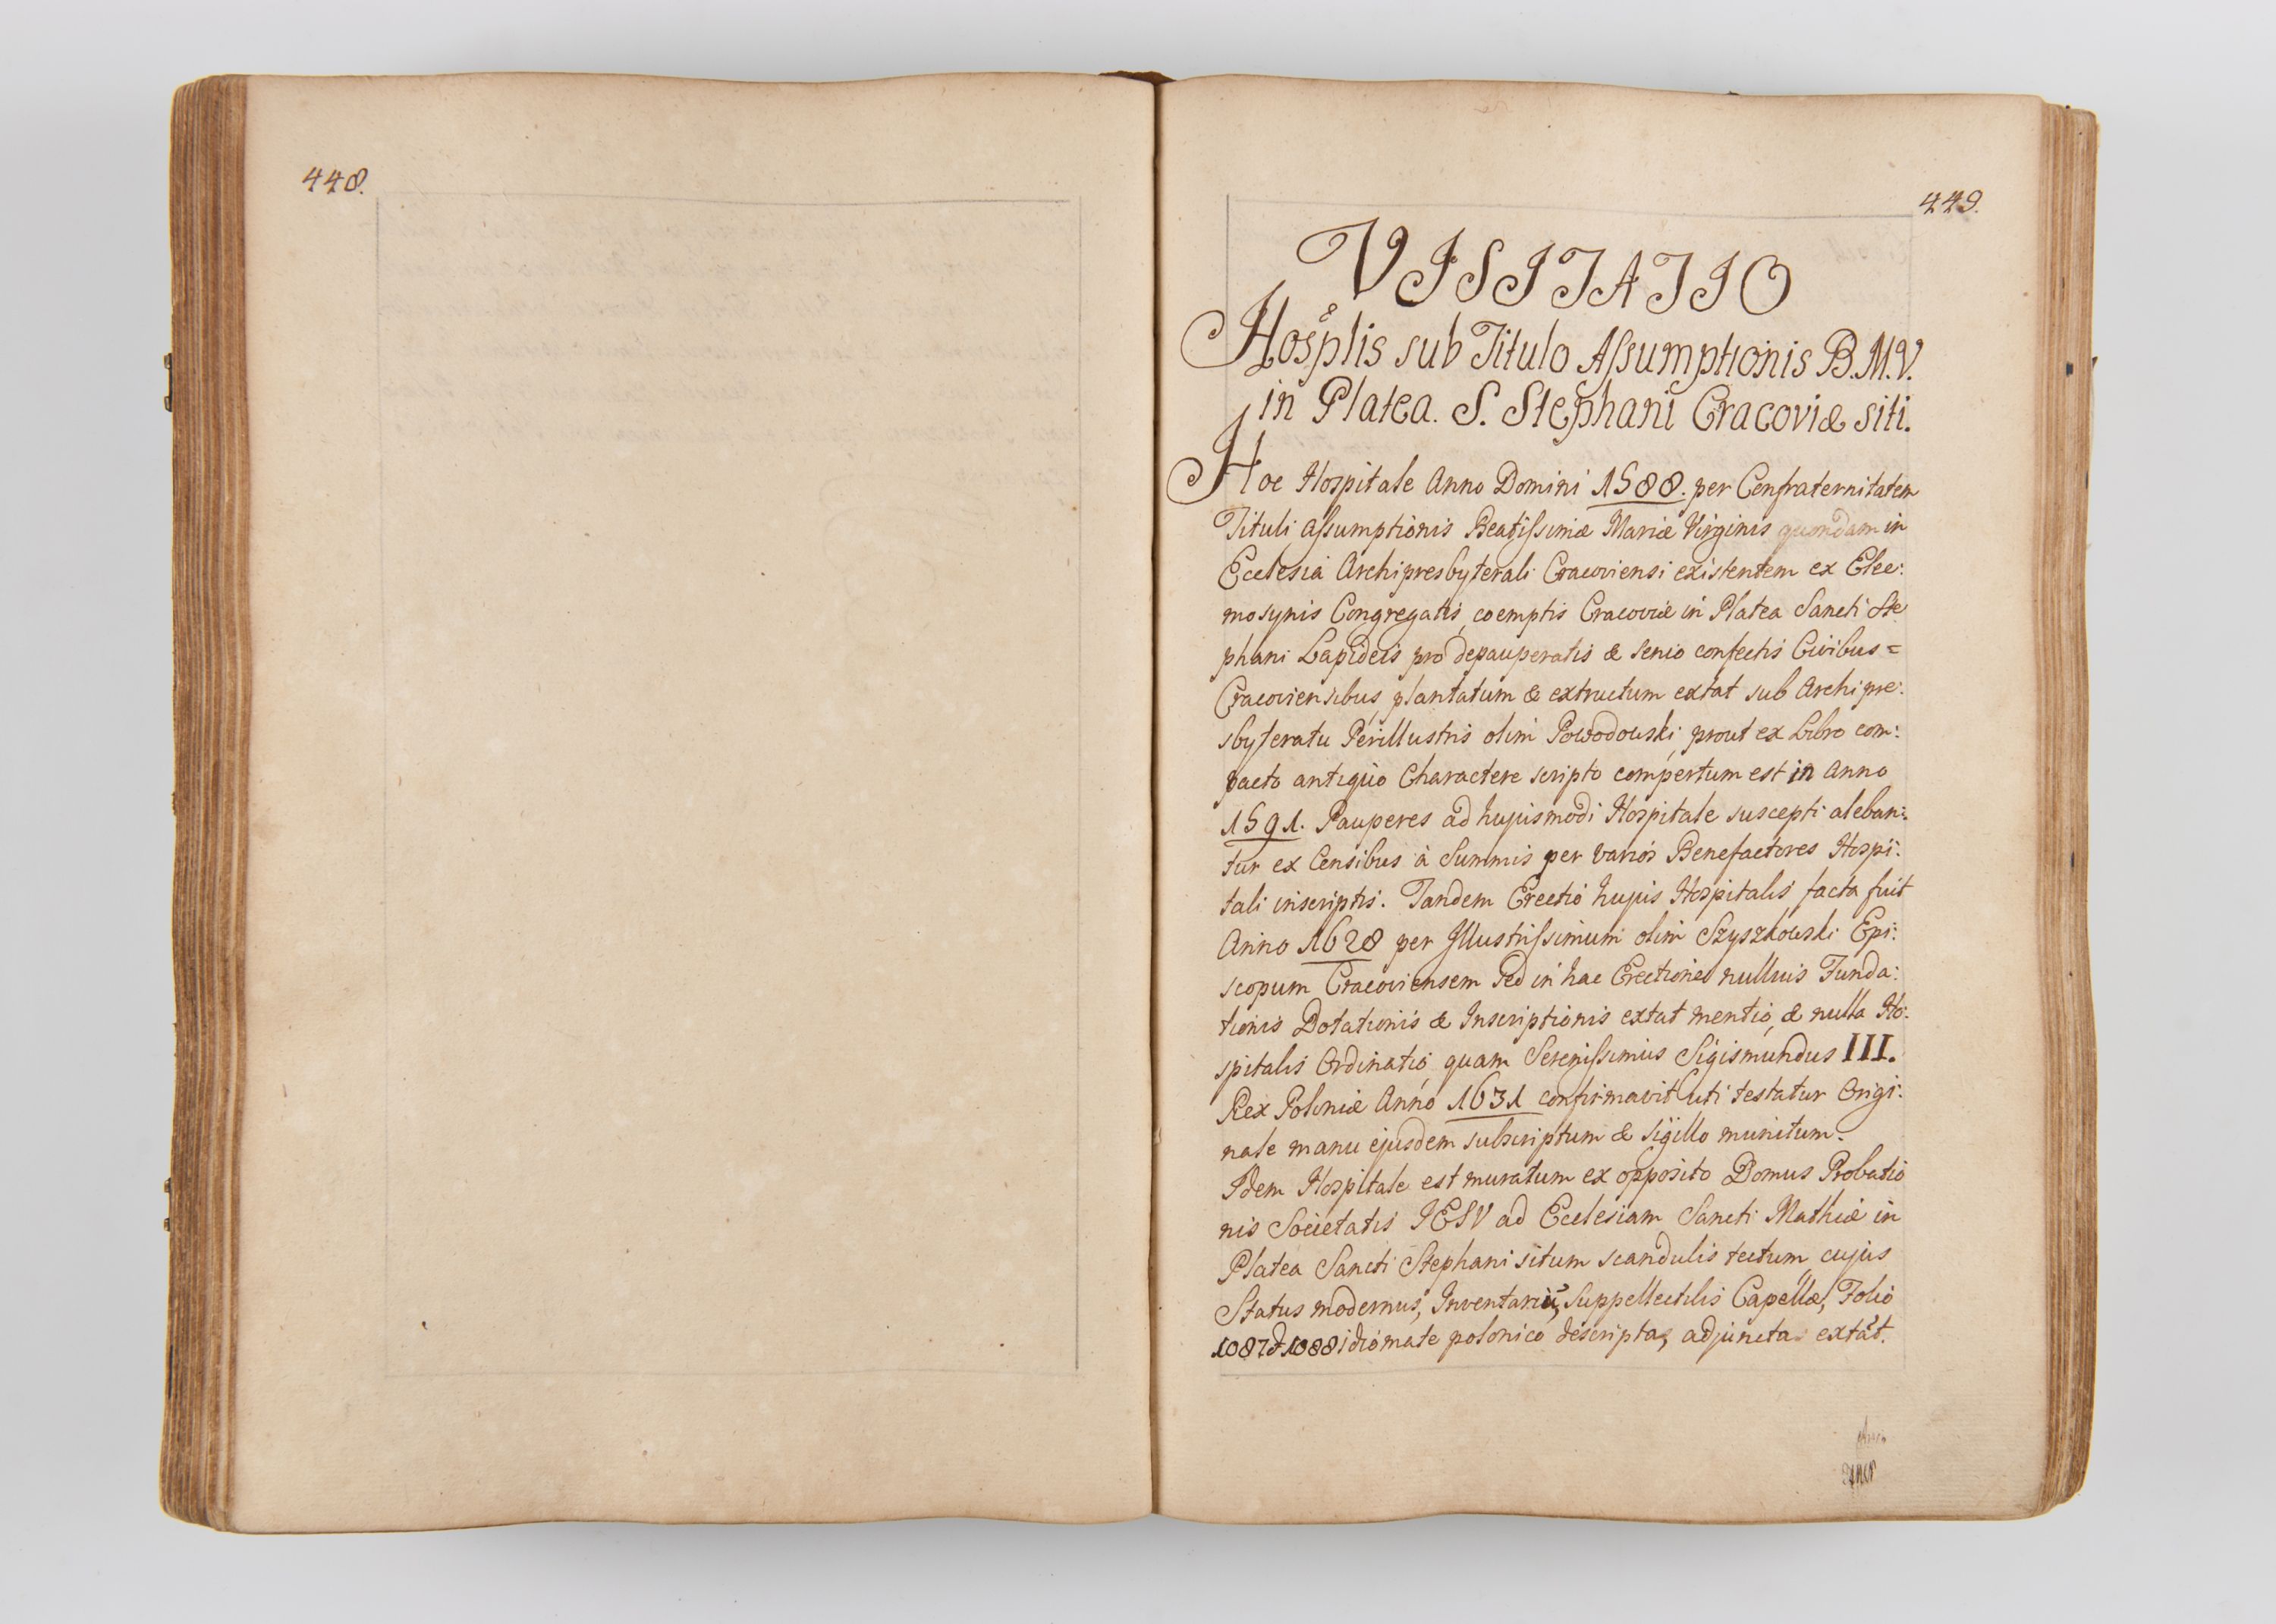 448.
449.
VISITATIO
Hosplis sub Titulo Assumptionis B.M.V.
in Platea. S. Stephani Cracoviæ siti.
Hoc Hospitale Anno Domini 1588. per Confraternitatem
Tituli Assumptionis Beatissimæ Mariæ Virginis quondam in
Ecclesia Archipresbyterali Cracoviensi existentem ex Elee:
mosynis Congregatis, coemptis Cracoviæ in Platea Sancti Ste
phani Lapideis pro depauperatis & senio confectis Civibus=
Cracoviensibus, plantatum & extructum extat sub Archipre:
sbyteratu Perillustris olim Powodowski, prout ex Libro com:
pacto antiquo Charactere scripto compertum est in Anno
1591. Pauperes ad hujusmodi Hospitale suscepti aleban:
tur ex Censibus à Summis per varios Benefactores Hospi:
tali inscriptis. Tandem Erectio hujus Hospitalis facta fuit
Anno 1628 per Illustrissimum olim Szyszkowski Epi:
scopum Cracoviensem sed in hac Erectione nullius Funda:
tionis Dotationis & Inscriptionis extat mentio, & nulla Ho:
spitalis Ordinatio, quam Serenissimus Sigismundus III.
Rex Poloniæ Anno 1631 confirmavit uti testatur Origi:
nale manu ejusdem subscriptum & sigillo munitum.
Idem Hospitale est muratum ex opposito Domus Probatio
nis Societatis IESV ad Ecclesiam Sancti Mathiæ in
Platea Sancti Stephani situm scandulis tectum, cujus
Status modernus, Inventariū, Suppellectilis Capellæ, Folio
1087 & 1088 idiomate polonico descripta, adjuncta extāt.